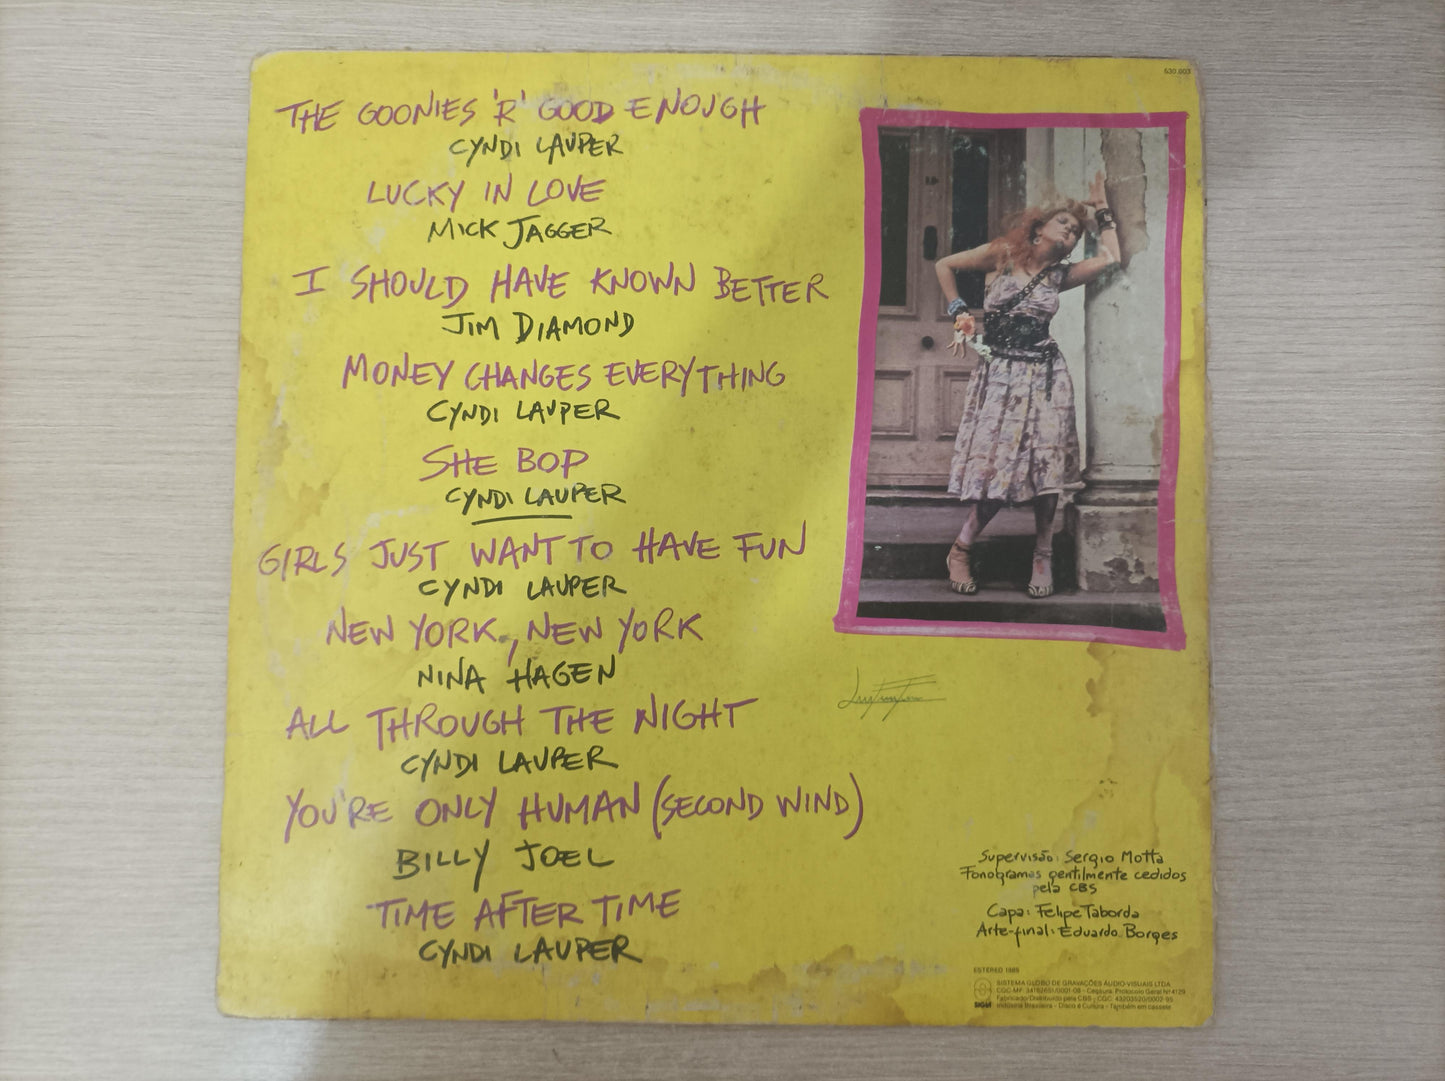 530.003
THE GOONIES 'R' GOOD ENOUGH
CYNDI LAUPER
LUCKY IN LOVE
MICK JAGGER
I SHOULD HAVE KNOWN BETTER
JIM DIAMOND
MONEY CHANGES EVERYTHING
CYNDI LAUPER
SHE BOP
CYNDI LAUPER
GIRLS JUST WANT TO HAVE FUN
CYNDI LAUPER
NEW YORK, NEW YORK
NINA HAGEN
ALL THROUGH THE NIGHT
CYNDI LAUPER
YOU'RE ONLY HUMAN (SECOND WIND)
BILLY JOEL
TIME AFTER TIME
CYNDI LAUPER
Supervisão: Sergio Motta
Fonogramas gentilmente cedidos
pela CBS
Capa: Felipe Taborda
Arte-final: Eduardo Borges
ESTÉREO 1985
SIGLA
SISTEMA GLOBO DE GRAVAÇÕES ÁUDIO-VISUAIS LTDA
CGC-MF 34162651/0001-08 - Censura: Protocolo Geral Nº 4129
Fabricado/Distribuído pela CBS - CGC: 43203520/0002-95
Indústria Brasileira - Disco é Cultura - Também em cassete